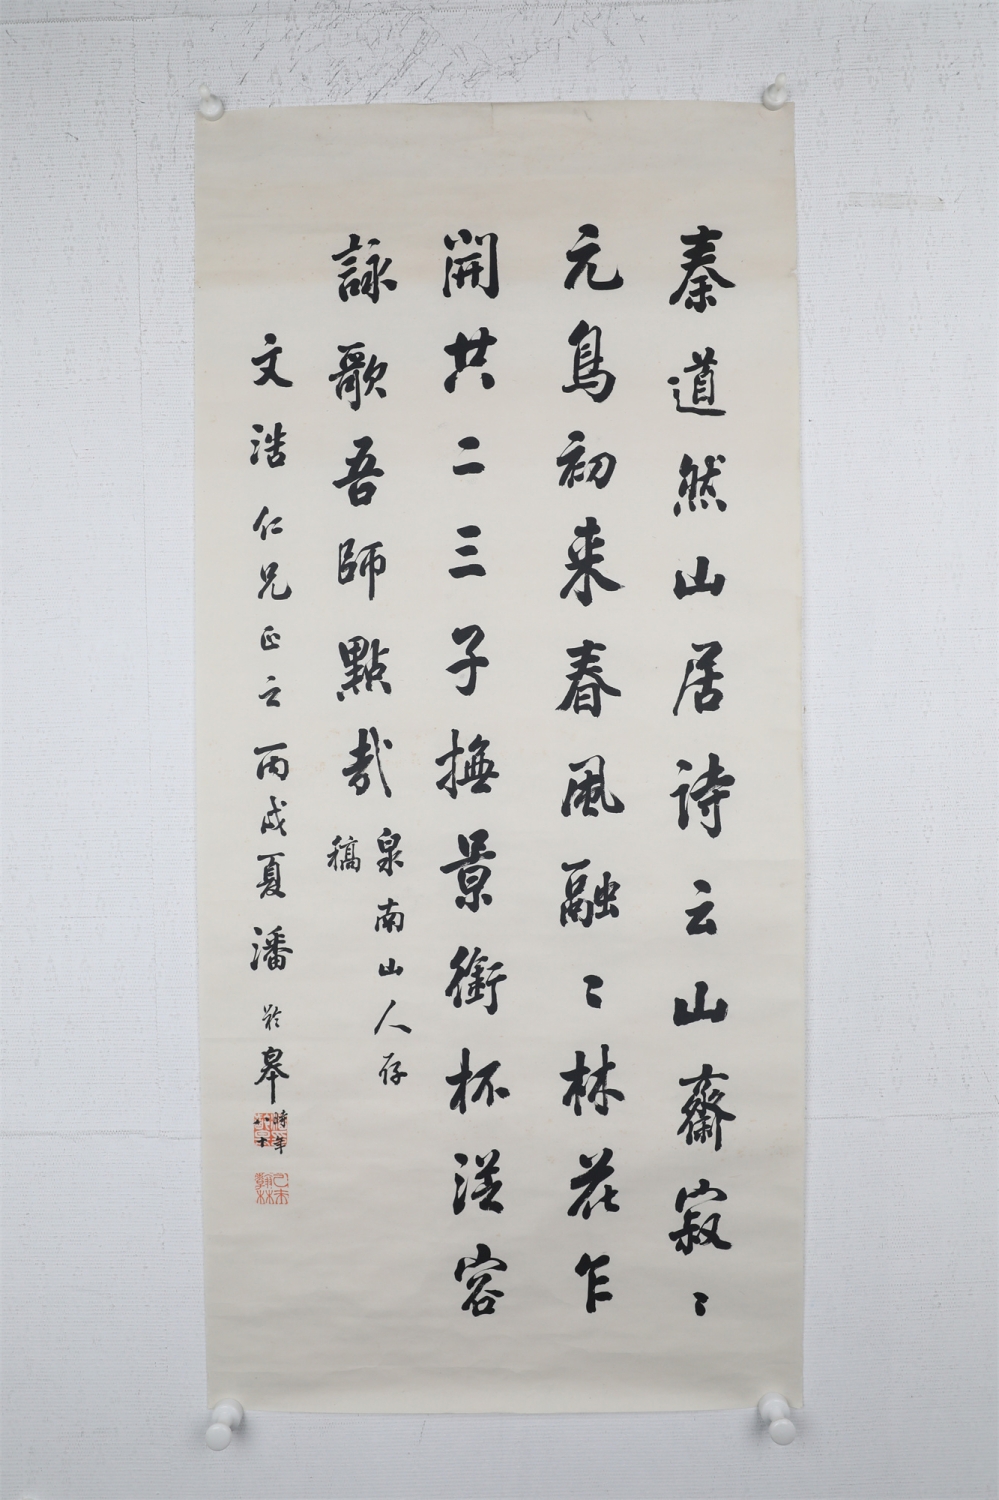 秦道然山居诗云山齋寂〻
元鳥初来春風融〻林花乍
開共二三子撫景銜杯從容
詠歌吾師點哉
泉南山人存
稿
文浩仁兄正之丙戌夏潘齡皋
時年
八十
己未
翰林